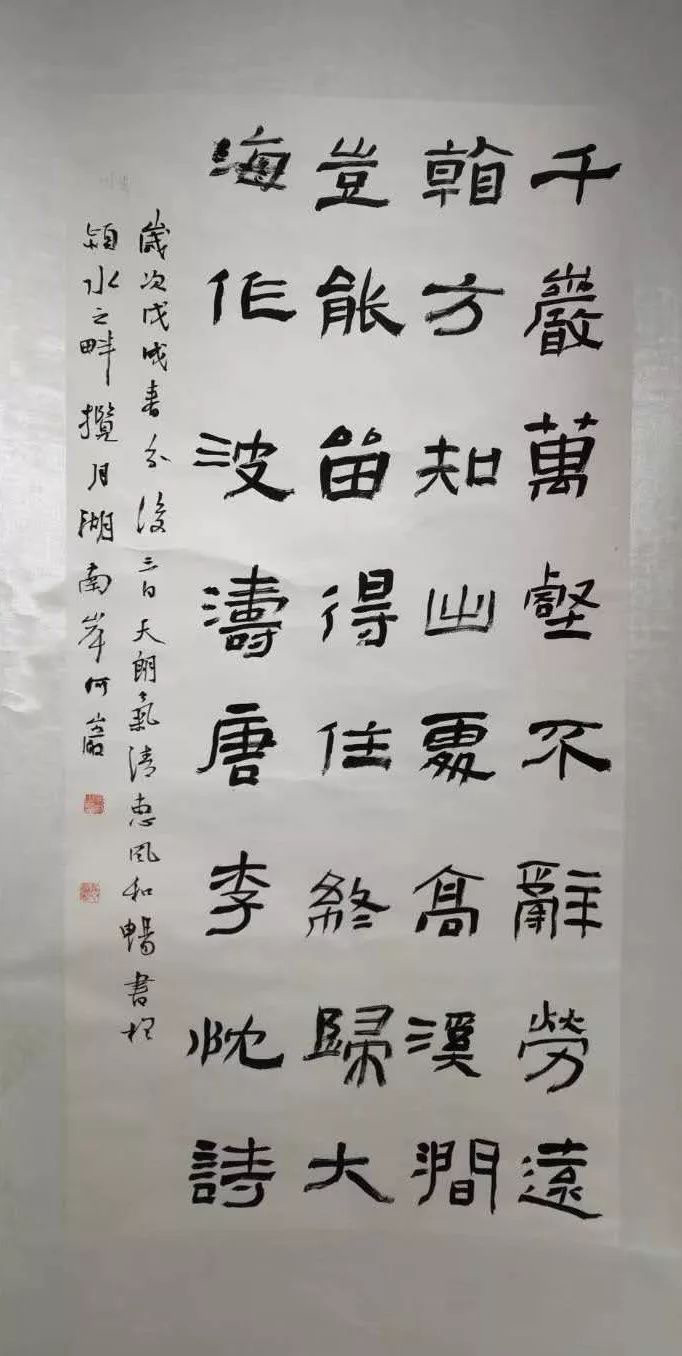 千巖萬壑不辭勞遠
看方知出處高溪澗
豈能留得住終歸大
海作波濤唐李忱詩
歲次戊戌春分後三日天朗氣清惠風和暢書於
潁水之畔攬月湖南岸何巖